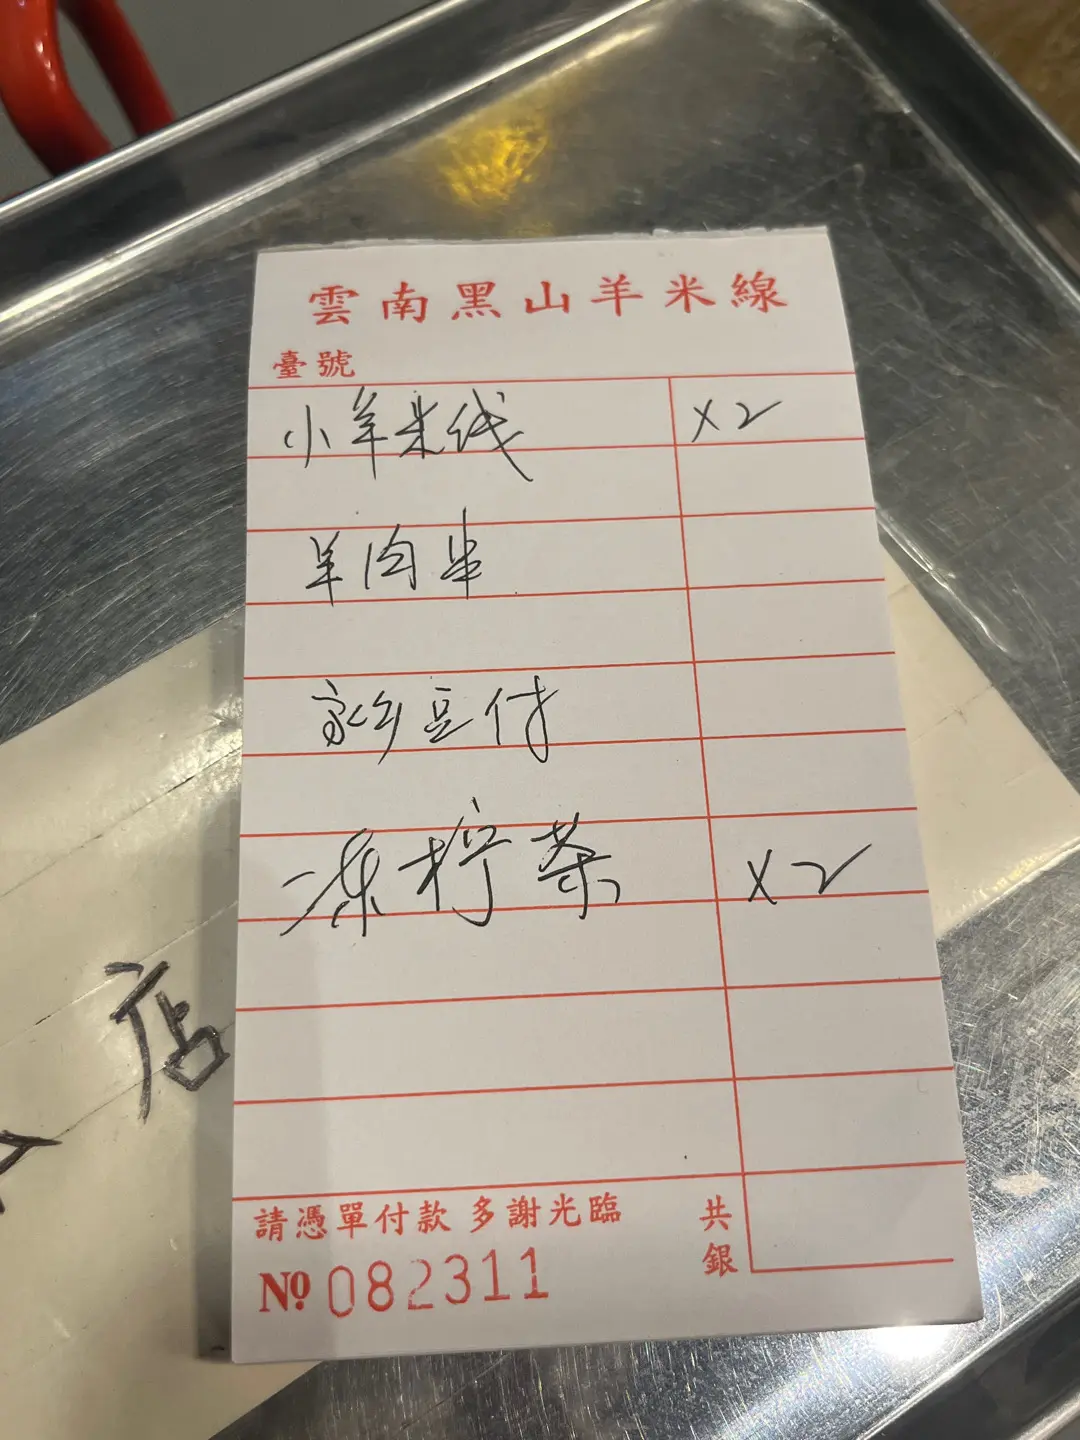 雲南黑山羊米線
臺號
小羊米线 x2
羊肉串
家乡豆付
冻柠茶 x2
店
請憑單付款 多謝光臨
共銀
Nº 082311